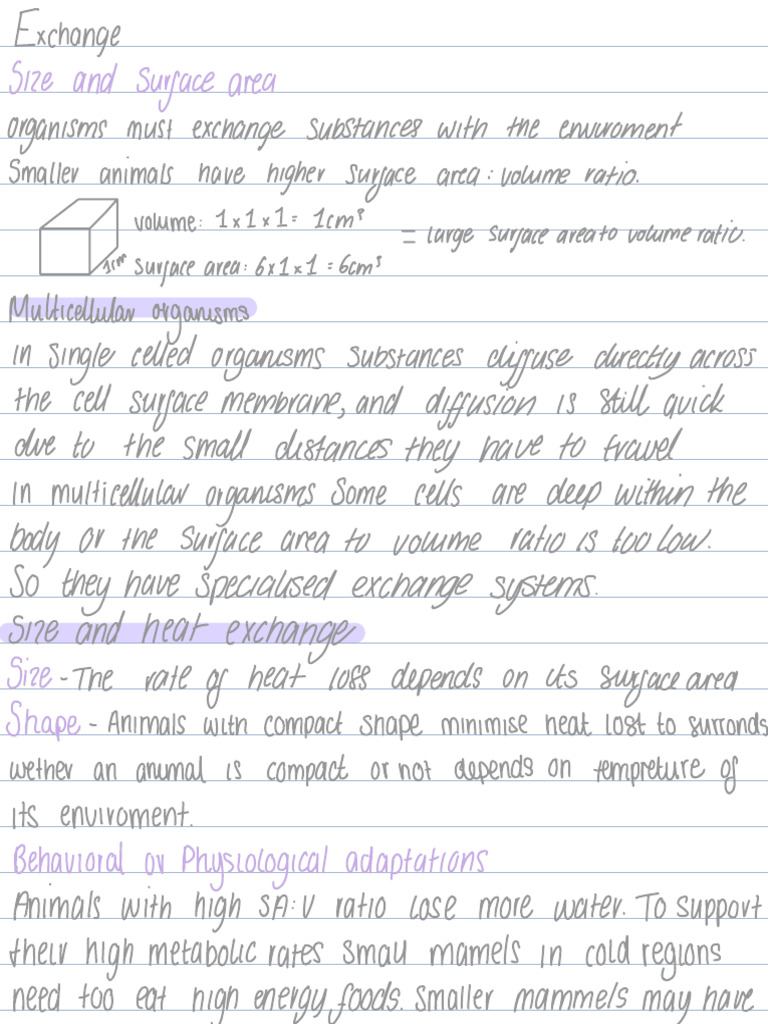 Exchange
Size and Surface area
organisms must exchange substances with the enviroment
Smaller animals have higher surface area : volume ratio.
volume: 1 x 1 x 1 = 1cm³
= large surface area to volume ratio.
1cm
surface area: 6 x 1 x 1 = 6cm³
Multicellular organisms
in single celled organisms substances diffuse directly across
the cell surface membrane, and diffusion is still quick
due to the small distances they have to travel
In multicellular organisms Some cells are deep within the
body or the surface area to volume ratio is too low.
So they have specialised exchange systems.
Size and heat exchange
Size - The rate of heat loss depends on its surface area
Shape - Animals with compact shape minimise heat lost to surronds
wether an animal is compact or not depends on tempreture of
its enviroment.
Behavioral or Physiological adaptations
Animals with high SA:V ratio lose more water. To support
their high metabolic rates small mamels in cold regions
need too eat high energy foods. Smaller mammels may have